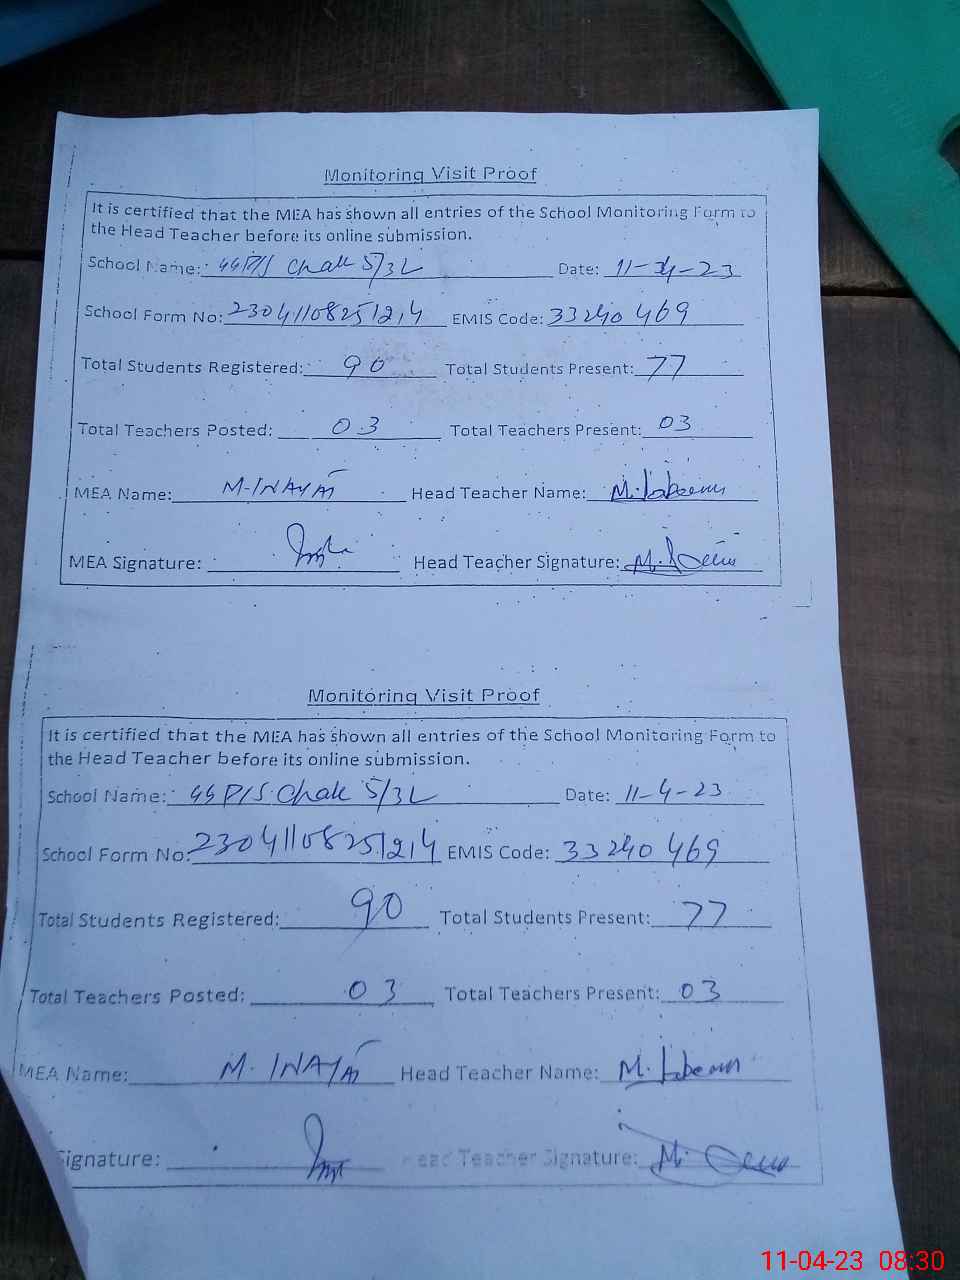 Monitoring Visit Proof
It is certified that the MEA has shown all entries of the School Monitoring Form to
the Head Teacher before its online submission.
School Name: GGP/S Chak 5/3L Date: 11-4-23
School Form No: 23041108251214 EMIS Code: 33240469
Total Students Registered: 90 Total Students Present: 77
Total Teachers Posted: 03 Total Teachers Present: 03
MEA Name: M. INAYAT Head Teacher Name: M.
MEA Signature: Head Teacher Signature: M.
Monitoring Visit Proof
It is certified that the MEA has shown all entries of the School Monitoring Form to
the Head Teacher before its online submission.
School Name: GGP/S Chak 5/3L Date: 11-4-23
School Form No: 23041108251214 EMIS Code: 33240469
Total Students Registered: 90 Total Students Present: 77
Total Teachers Posted: 03 Total Teachers Present: 03
MEA Name: M. INAYAT Head Teacher Name: M.
Signature: Head Teacher Signature: M.
11-04-23 08:30